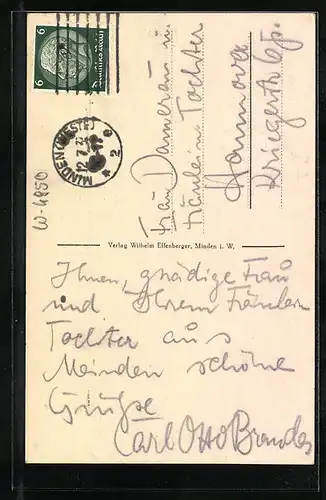 6 6
MINDEN (WESTF)
e
2
W-4850
Frau Dameran u.
Fräulein Tochter
Hannover
Verlag Wilhelm Elfenberger, Minden i. W.
Ihnen, gnädige Frau
und Ihrem Fräulein
Tochter aus
Meinden schöne
Grüße
Carl Otto Brandes